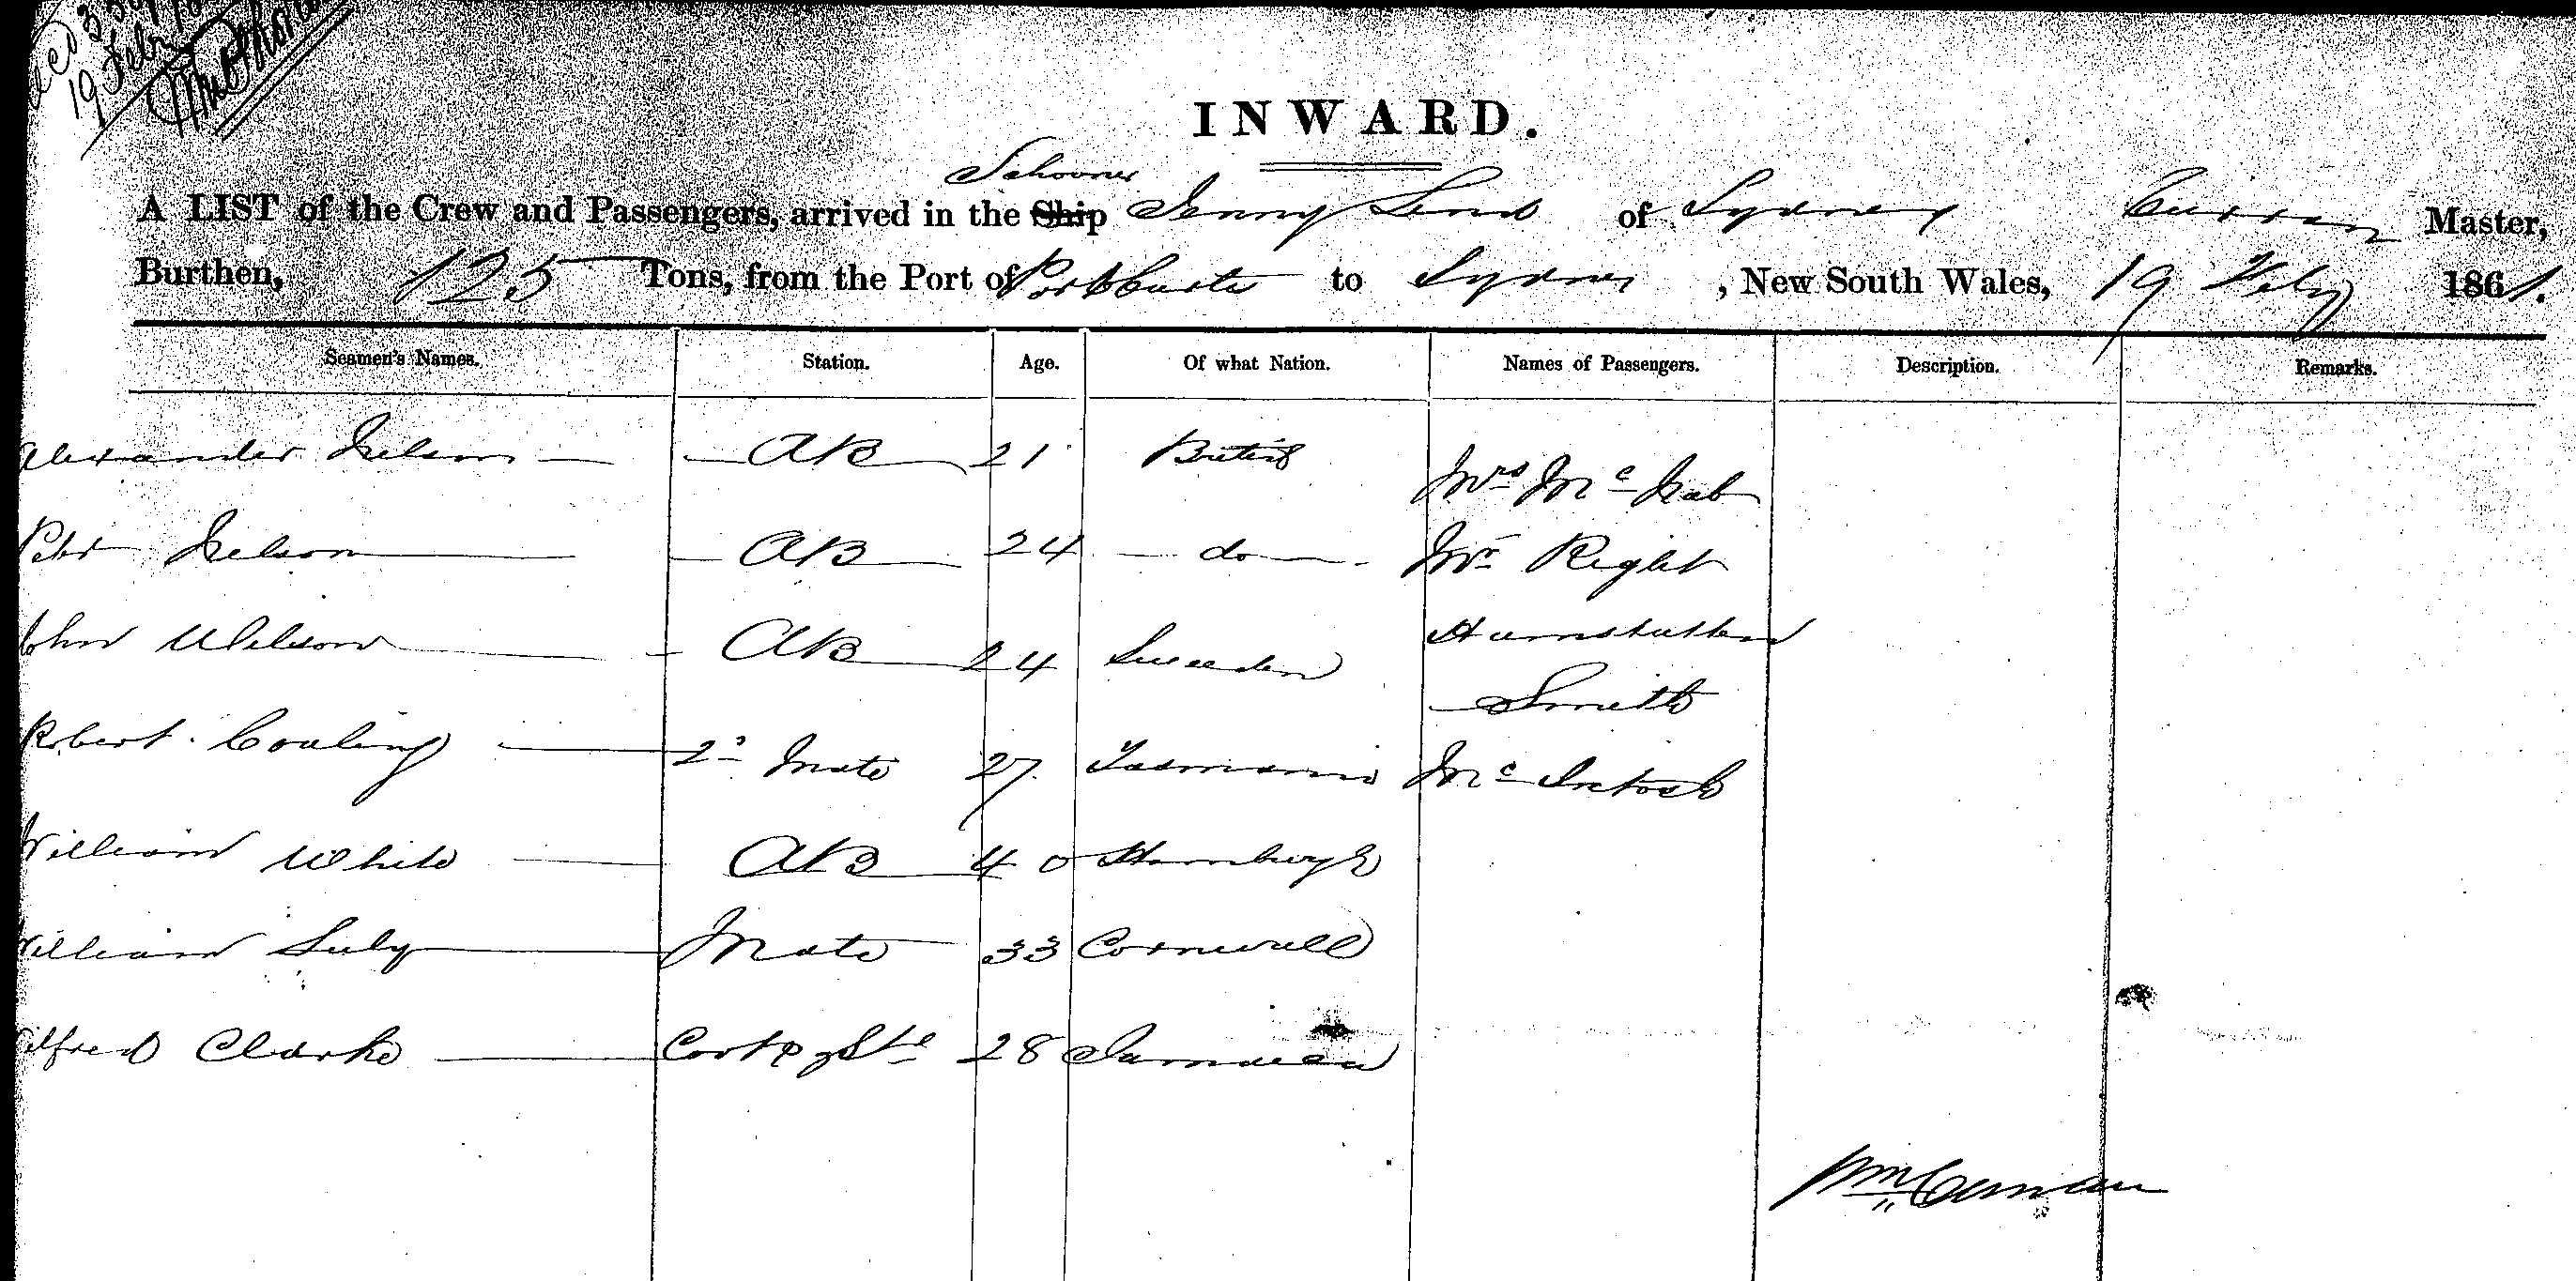 19 Feby
INWARD.
Schooner
A LIST of the Crew and Passengers, arrived in the Ship Jenny Lind of Sydney Curran Master,
Burthen, 125 Tons, from the Port of Port Curtis to Sydney, New South Wales, 19 Feby 1861.
Seamen's Names. Station. Age. Of what Nation. Names of Passengers. Description. Remarks.
Alexander Nelson AB 21 British
Mrs Mc Nab
Peter Nelson AB 24 do Mr Right
John Wilson AB 24 Sweeden
Smith
Robert Cowling 2d Mate 27 Tasmania Mc Intosh
William White AB 40 Hamburgh
William July Mate 33 Cornwall
Alfred Clarke Cook & Std 28 Jamaica
Wm Curran